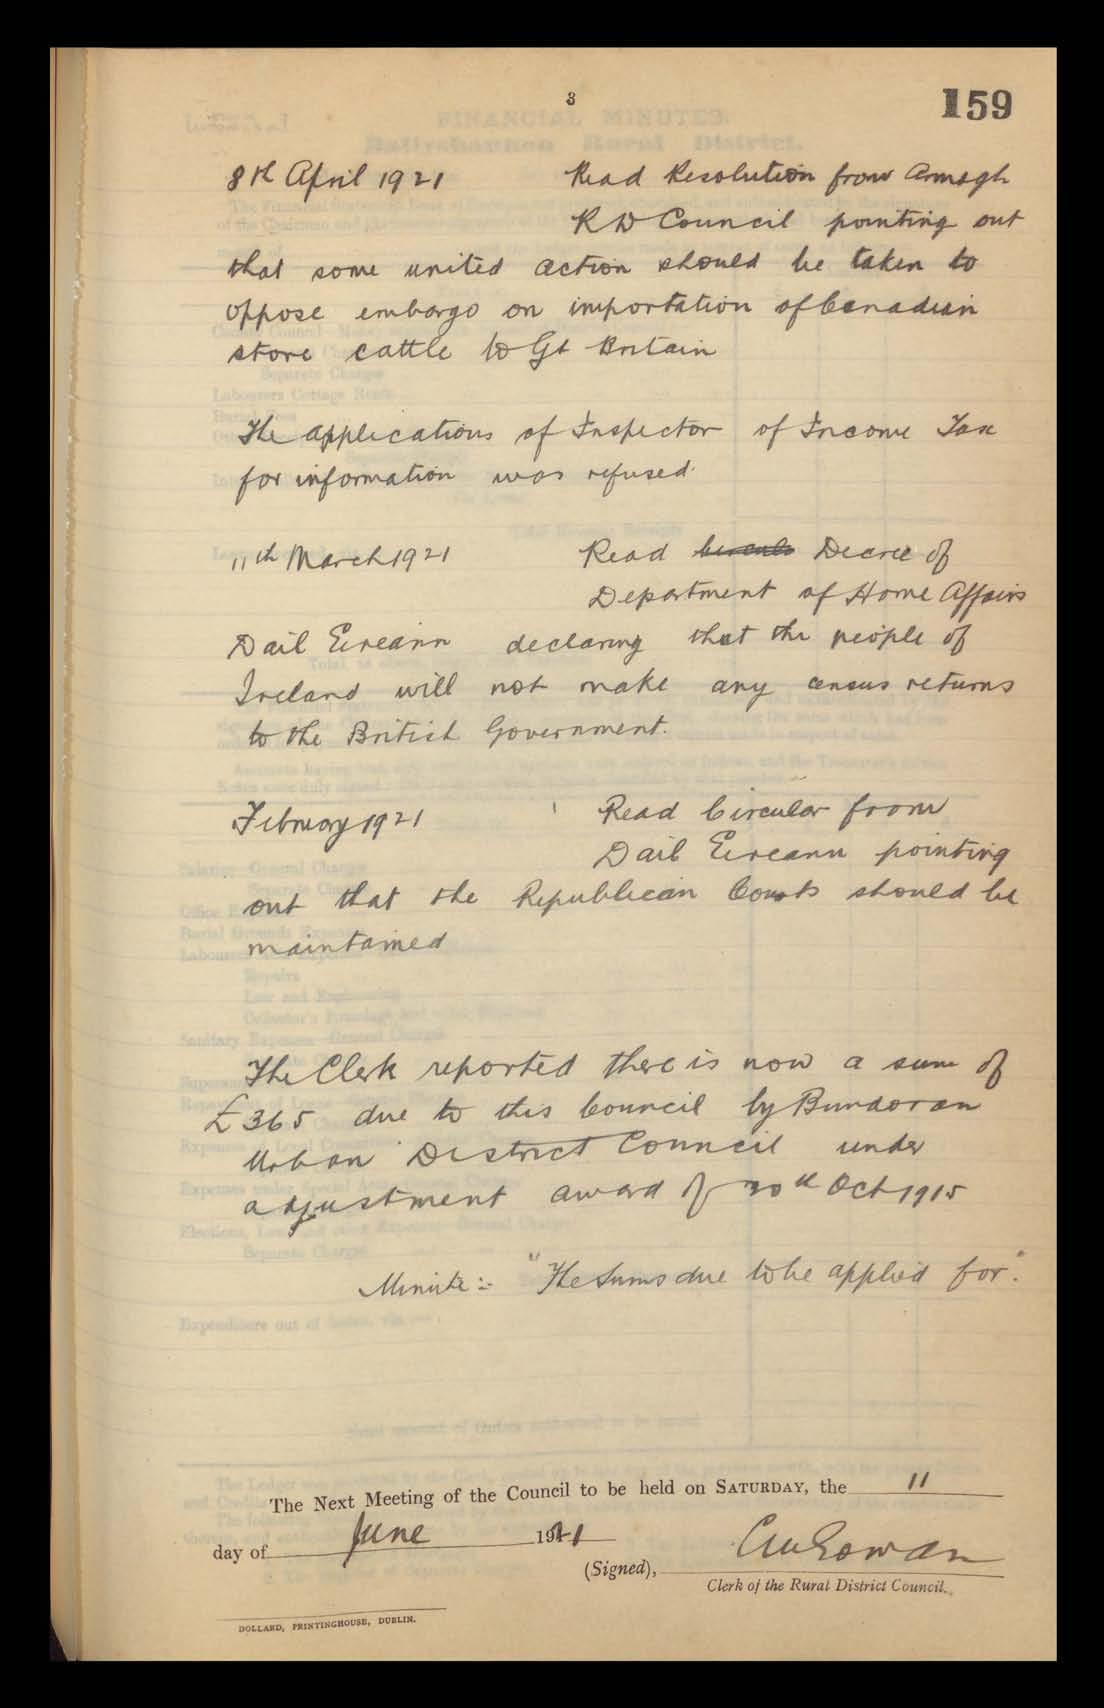 3
159
8th April 1921 Read Resolution from Armagh
R D Council pointing out
that some united action should be taken to
oppose embargo on importation of Canadian
store cattle to Gt Britain
The applications of Inspector of Income Tax
for information was refused.
11th March 1921 Read Decree of
Department of Home Affairs
Dail Eireann declaring that the people of
Ireland will not make any census returns
to the British Government.
February 1921 Read Circular from
Dail Eireann pointing
out that the Republican Courts should be
maintained
The Clerk reported there is now a sum of
£365 due to this Council by Bundoran
Urban District Council under
adjustment award of Oct 1915
Minute:- "The Sums due to be applied for."
The Next Meeting of the Council to be held on SATURDAY, the 11
day of June 1921
(Signed),
Clerk of the Rural District Council.
DOLLARD, PRINTINGHOUSE, DUBLIN.